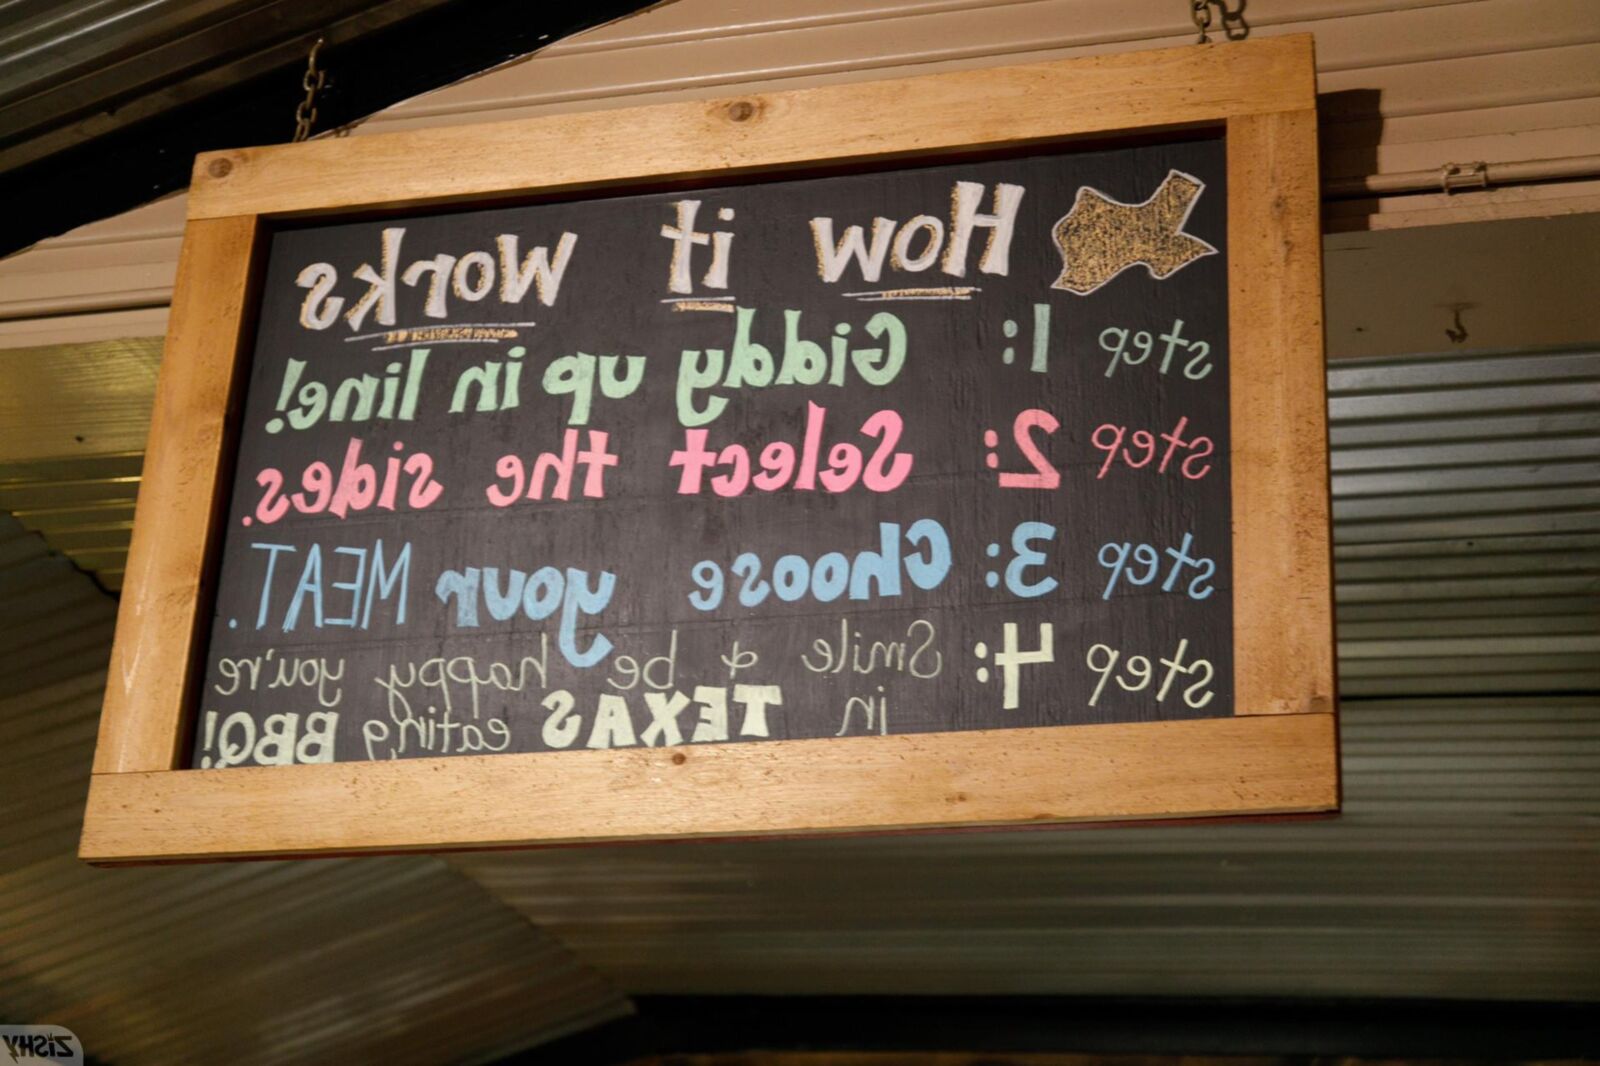 How it Works
step 1: Giddy up in line!
step 2: Select the sides.
step 3: Choose your MEAT.
step 4: Smile & be happy you're
in TEXAS eating BBQ!
ZiSHY